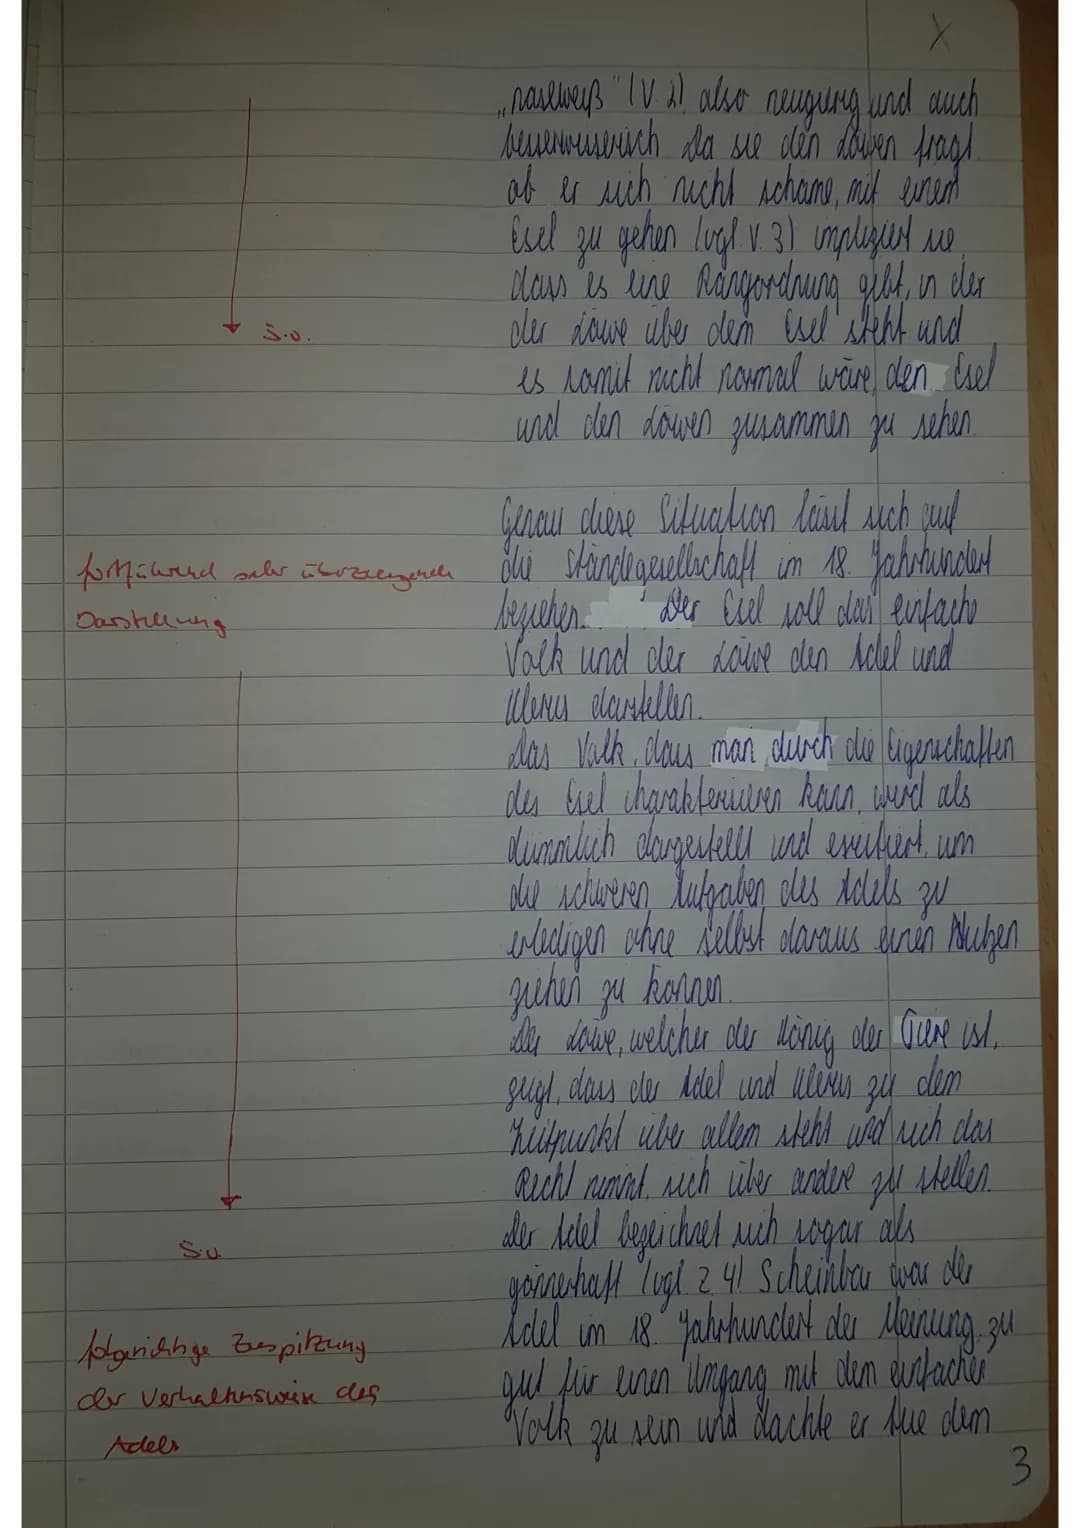 X
„naseweiß" (V. 2) also neugierig und auch
besserwisserisch. Da sie den Löwen fragt
ob er sich nicht schäme, mit einem
Esel zu gehen (vgl. V. 3) impliziert sie,
dass es eine Rangordnung gibt, in der
der Löwe über dem Esel steht und
s.o.
es somit nicht normal wäre, den Esel
und den Löwen zusammen zu sehen.
Genau diese Situation lässt sich auf
die Ständegesellschaft im 18. Jahrhundert
beziehen. Der Esel soll das einfache
Volk und der Löwe den Adel und
Klerus darstellen.
fortführend sehr überzeugende
Darstellung
Das Volk, dass man durch die Eigenschaften
des Esel charakterisieren kann, wird als
dümmlich dargestellt und existiert, um
die schweren Aufgaben des Adels zu
erledigen ohne selbst daraus einen Nutzen
ziehen zu können.
Der Löwe, welcher der König der Tiere ist,
zeigt, dass der Adel und Klerus zu dem
Zeitpunkt über allem steht und sich das
Recht nimmt, sich über andere zu stellen.
Der Adel bezeichnet sich sogar als
s.o.
gönnerhaft (vgl. Z 4) Scheinbar war der
Adel im 18. Jahrhundert der Meinung, zu
gut für einen Umgang mit dem einfachen
Volk zu sein und dachte er tue dem
folgerichtige Zuspitzung
der Verhaltensweise des
Adels
3